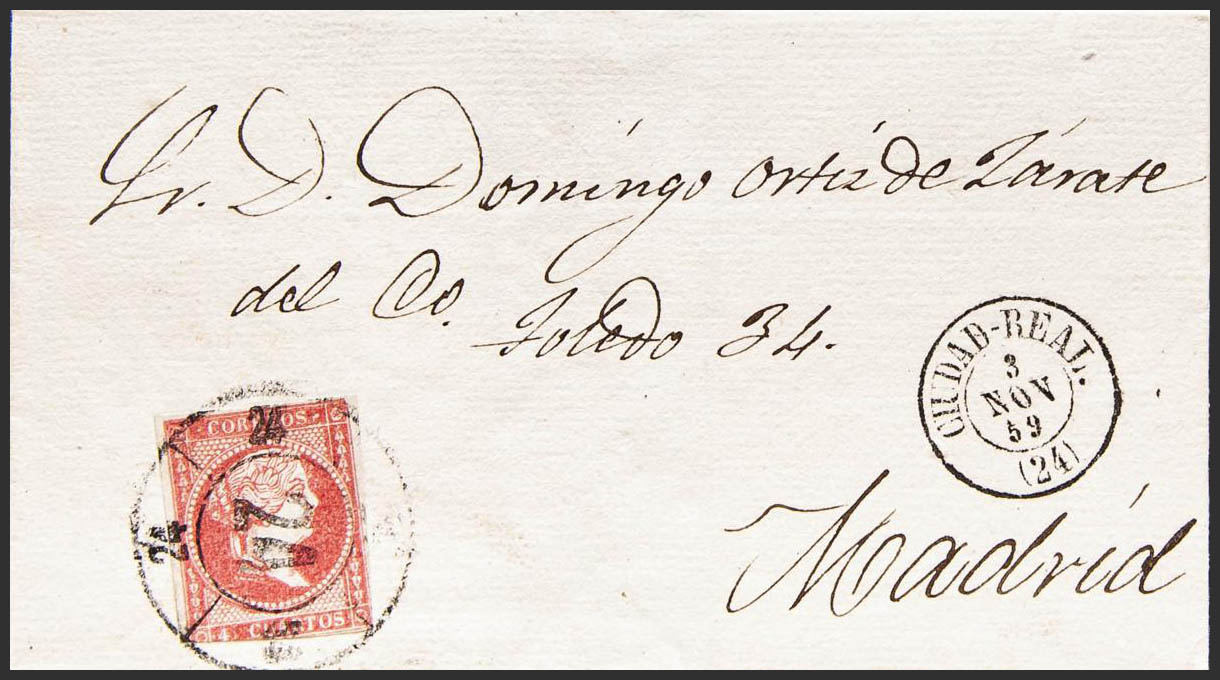 Sr. D. Domingo Ortiz de Zárate
del Co.
Toledo 34.
CIUDAD-REAL.
3
NOV
59
(24)
CORREOS
24
24
24
4 CUARTOS
Madrid